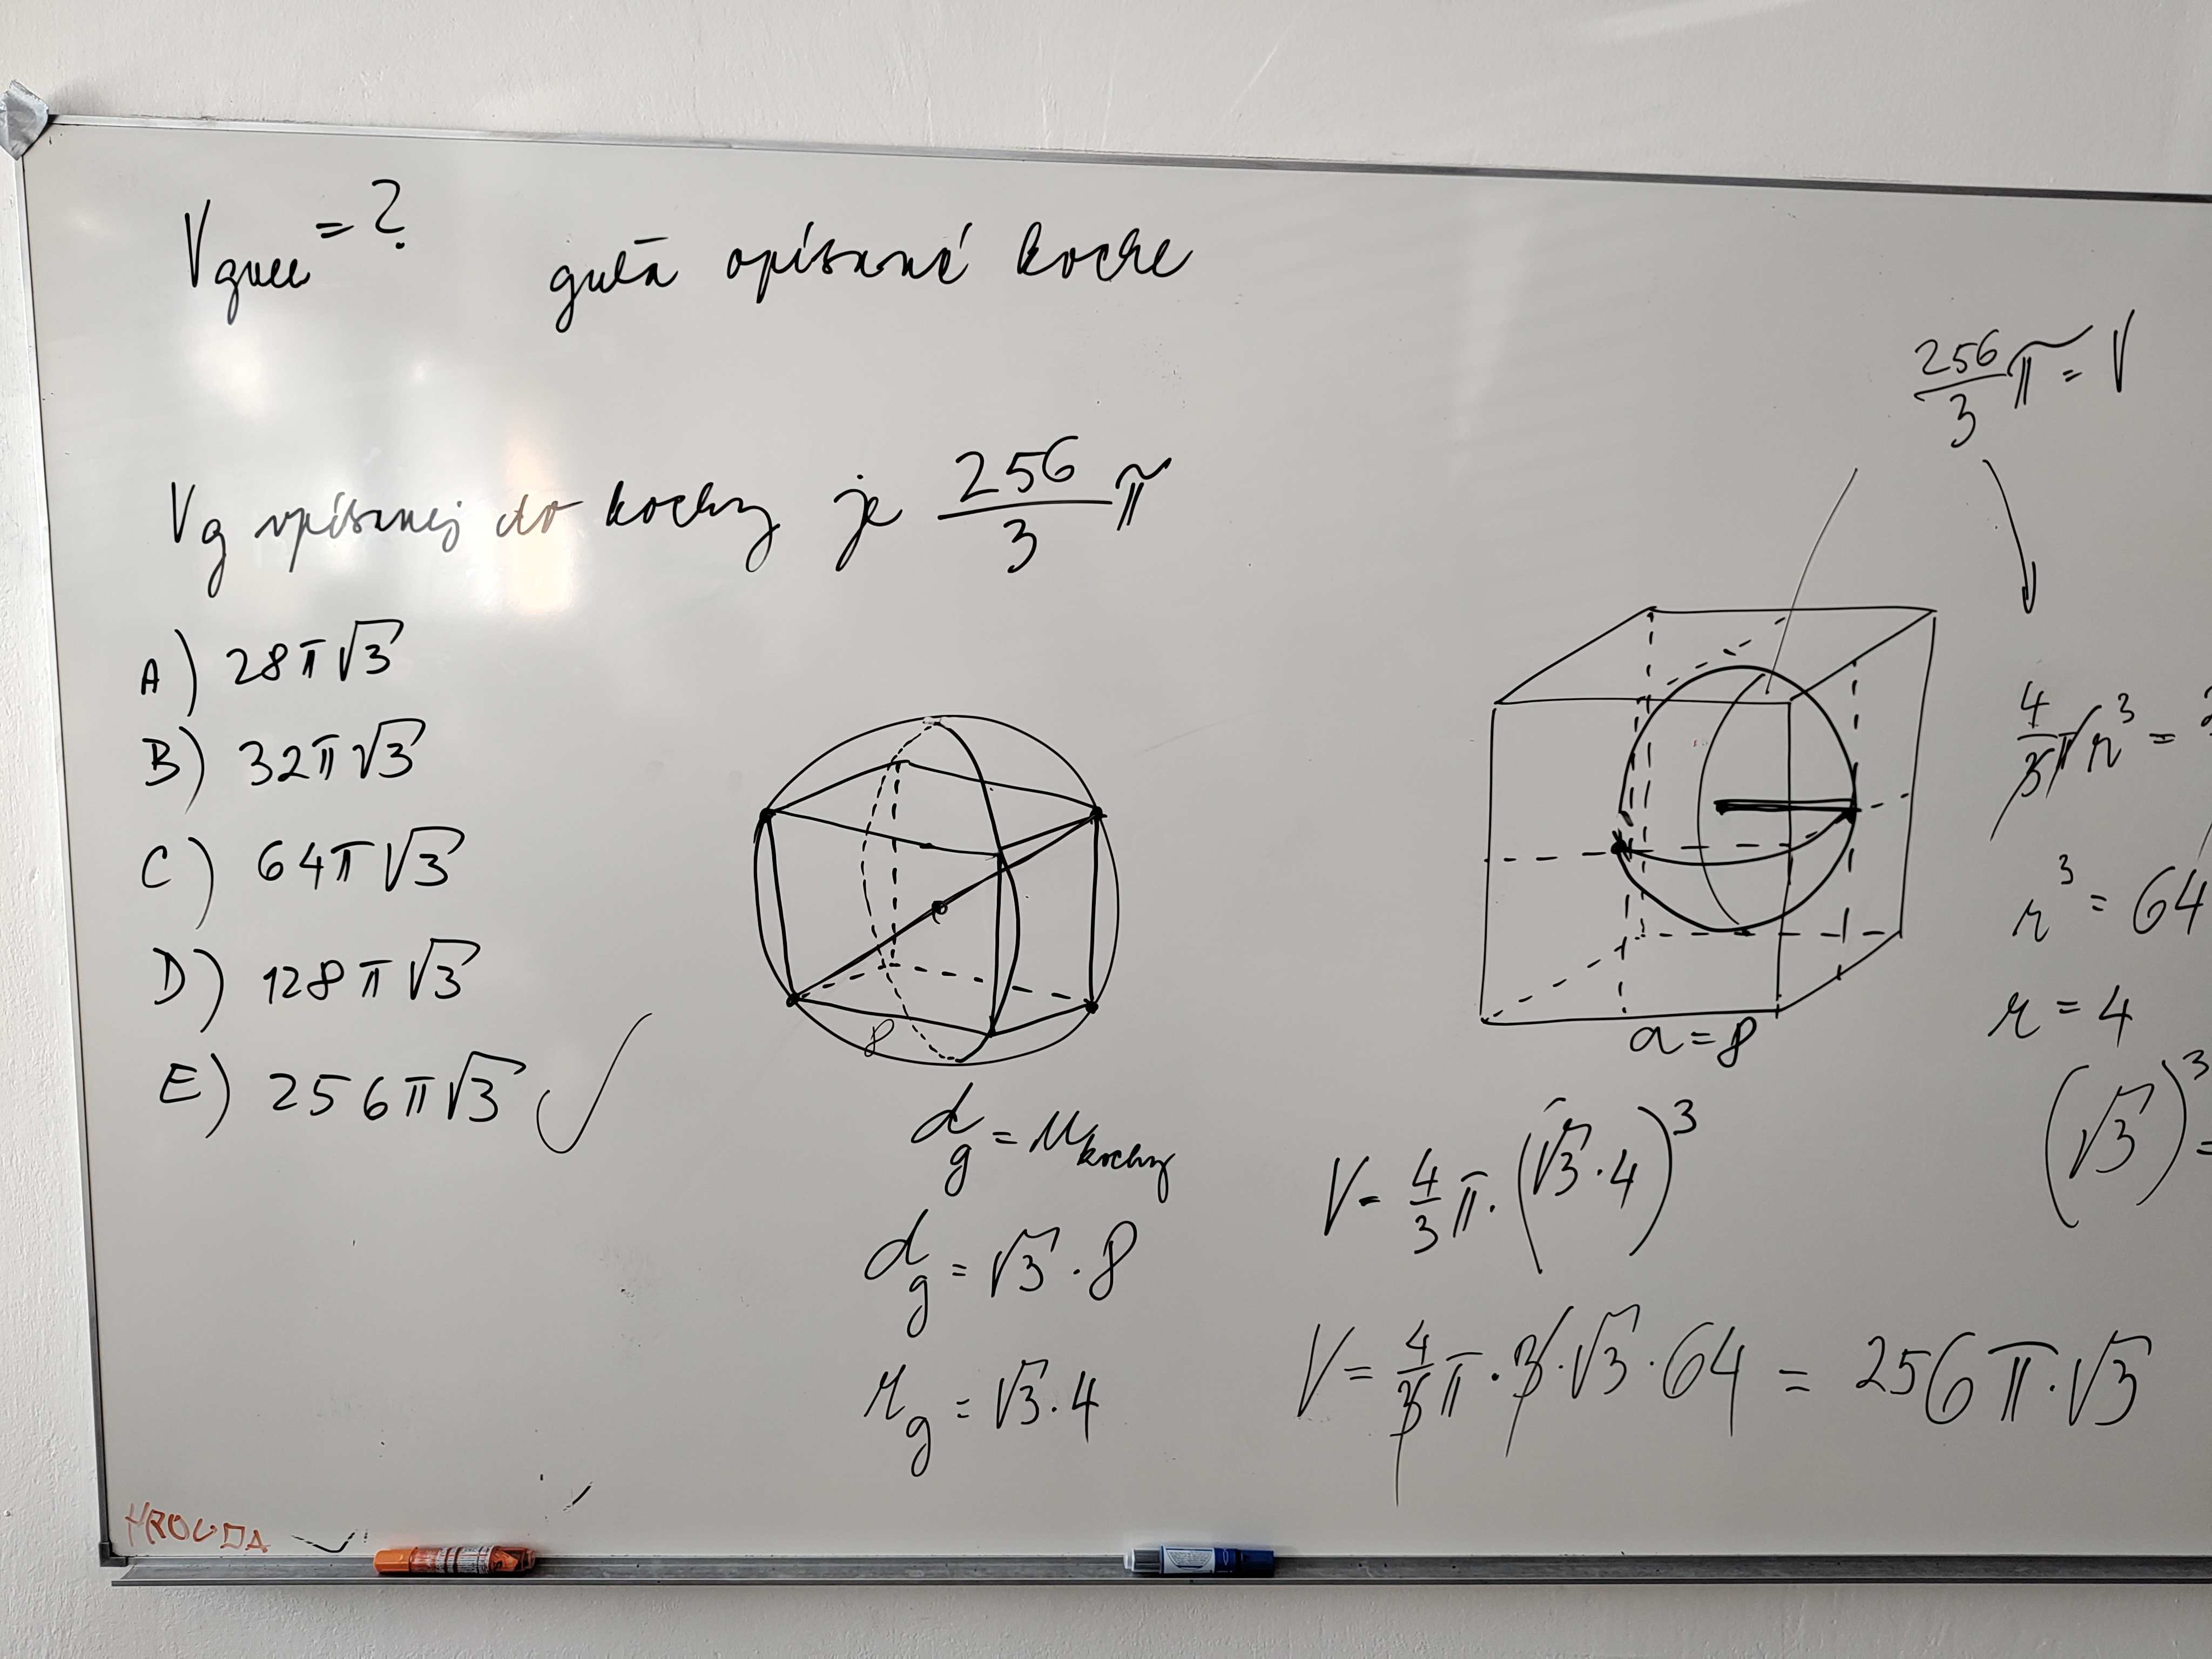 V gule = ?
guľa opísaná kocke
V g vpísanej do kocky je 256/3 π
A) 28π√3
B) 32π√3
C) 64π√3
D) 128π√3
E) 256π√3 ✓
8
d_g = u_kocky
d_g = √3 · 8
r_g = √3 · 4
256/3 π = V
a = 8
4/3 π r³ =
r³ = 64
r = 4
(√3)³ =
V = 4/3 π · (√3 · 4)³
V = 4/3 π · 3 · √3 · 64 = 256 π · √3
HROUDA